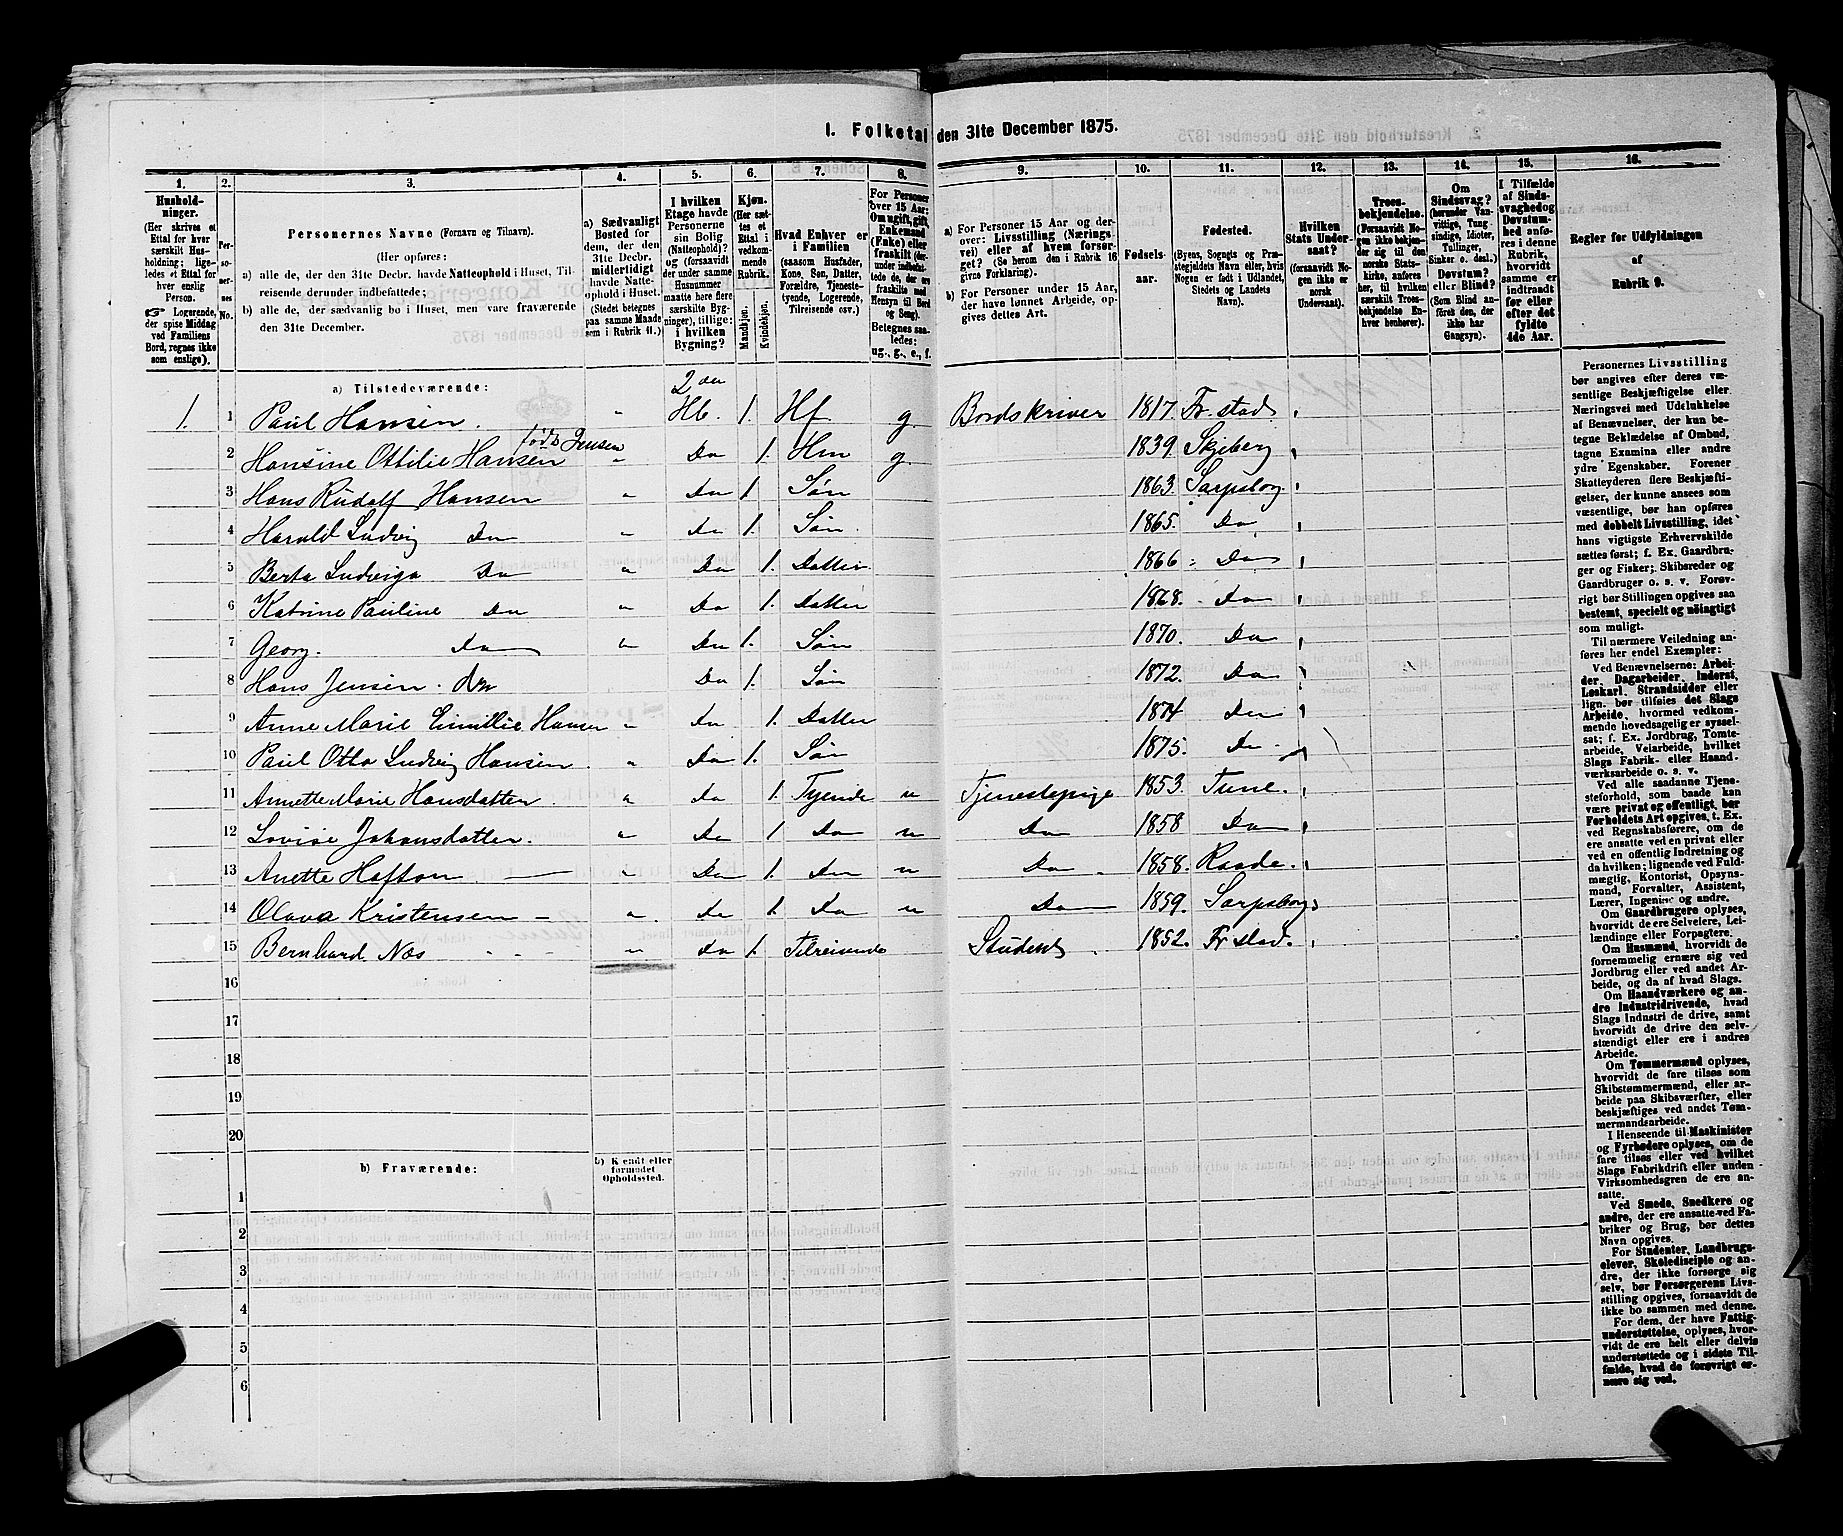 1. Folketal den 31te December 1875.
1. 2. 3. 4. 5. 6. 7. 8. 9. 10. 11. 12. 13. 14. 15. 16.
Husholdninger. (Her skrives et Ettal for hver særskilt Husholdning; ligeledes et Ettal for hver enslig Person. Logerende, der spise Middag ved Familiens Bord, regnes ikke som enslige).
Personernes No.
Personernes Navne (Fornavn og Tilnavn).
(Her opføres:
a) alle de, der den 31te Decbr. havde Natteophold i Huset, Tilreisende derunder indbefattede;
b) alle de, der sædvanlig bo i Huset, men vare fraværende den 31te December.
a) Sædvanligt Bosted for dem, der den 31te Decbr. midlertidigt havde Natteophold i Huset. (Stedet betegnes paa samme Maade som i Rubrik 11.)
I hvilken Etage havde Personerne sin Bolig (Natteophold)? og (forsaavidt der under samme Husnummer maatte høre flere særskilte Bygninger), tillige: i hvilken Bygning?
Kjøn. (Her sættes et Ettal i vedkommende Rubrik. Mandkjøn. Kvindekjøn.
Hvad Enhver er i Familien (saasom Husfader, Kone, Søn, Datter, Forældre, Tjenestetyende, Logerende, Tilreisende osv.)
For Personer over 15 Aar: Om ugift, gift, Enkemand (Enke) eller fraskilt
Betegnes saaledes: ug., g., e., f.
a) For Personer 15 Aar og derover: Livsstilling (Næringsvei) eller af hvem forsørget? (Se herom den i Rubrik 16 givne Forklaring).
b) For Personer under 15 Aar, der have lønnet Arbeide, opgives dettes Art.
Fødselsaar.
Fødested. (Byens, Sognets og Præstegjeldets Navn eller, hvis Nogen er født i Udlandet, Stedets og Landets Navn).
Hvilken Stats Undersaat? (forsaavidt Nogen ikke er norsk Undersaat).
Troesbekjendelse. (Forsaavidt Nogen ikke bekjender sig til den norske Statskirke, anføres her, til hvilken særskilt Troesbekjendelse Enhver henhører).
Om Sindssvag? (herunder Vanvittige, Tungsindige, Idioter, Tullinger, Sinker o. desl.) Døvstum? eller Blind? (Som Blind anføres den, der ikke har Gangsyn).
I Tilfælde af Sindssvaghed og Døvstumhed anføres i denne Rubrik, hvorvidt samme er indtraadt før eller efter det fyldte 4de Aar.
Regler for Udfyldningen af Rubrik 9.
a) Tilstedeværende:
1. 1 Paul Hansen. " 2den Hb. 1. Hf g. Bordskriver 1817. Fr.stad
2 Hansine Ottilie Hansen født Jensen " Do 1. Hm g. 1839. Skjeberg
3 Hans Rudolf Hansen " Do 1 Søn 1863. Sarpsborg
4 Harald Ludvig Do " Do 1. Søn. 1865. Do
5 Berta Ludviga Do " Do 1. Datter 1866 Do
6 Katrine Pauline Do " Do 1. Datter 1868. Do
7 Georg. Do " Do 1. Søn 1870. Do
8 Hans Jensen. Do Do 1. Søn 1872. Do
9 Anne Marie Emilie Hansen " Do 1. Datter 1874 Do
10 Paul Otto Ludvig Hansen. " Do 1. Søn 1875. Do
11 Annette Marie Hansdatter. " Do 1. Tyende u Tjenestepige 1853. Tune.
12 Lovise Johansdatter. " Do 1 Do u Do 1858 Do
13 Anette Hafton " Do 1. Do u Do 1858. Raade.
14 Olava Kristensen " Do 1. Do u Do 1859. Sarpsborg
15 Bernhard Næs " Do 1. Tilreisende Student 1852. Fr.stad.
16
17
18
19
20
b) Fraværende: b) Kjendt eller formodet Opholdssted.
1
2
3
4
5
6
Personernes Livsstilling
bør angives efter deres væ-
sentlige Beskjæftigelse eller
Næringsvei med Udelukkelse
af Benævnelser, der kun be-
tegne Beklædelse af Ombud,
tagne Examina eller andre
ydre Egenskaber. Forener
Skatteyderen flere Beskjæfti-
gelser, der kunne ansees som
væsentlige, bør han opføres
med dobbelt Livsstilling, idet
hans vigtigste Erhvervskilde
sættes først; f. Ex. Gaardbru-
ger og Fisker; Skibsreder og
Gaardbruger o. s. v. Forøv-
rigt bør Stillingen opgives saa
bestemt, specielt og nöiagtigt
som muligt.
Til nærmere Veiledning an-
føres her endel Exempler:
Ved Benævnelserne: Arbei-
der, Dagarbeider, Inderst,
Løskarl, Strandsidder eller
lign. bør tilføies det Slags
Arbeide, hvormed vedkom-
mende hovedsagelig er syssel-
sat; f. Ex. Jordbrug, Tomte-
arbeide, Veiarbeide, hvilket
Slags Fabrik- eller Haand-
værksarbeide o. s. v.
Ved alle saadanne Tjene-
steforhold, som baade kan
være privat og offentligt, bør
Forholdets Art opgives, t. Ex.
ved Regnskabsførere, om de
ere ansatte ved en privat eller
ved en offentlig Indretning og
da hvilken; lignende ved Fuld-
mægtig, Kontorist, Opsyns-
mand, Forvalter, Assistent,
Lærer, Ingeniør og andre.
Om Gaardbrugere oplyses,
hvorvidt de ere Selveiere, Lei-
lændinge eller Forpagtere.
Om Husmænd, hvorvidt de
fornemmelig ernære sig ved
Jordbrug eller ved andet Ar-
beide, og da af hvad Slags.
Om Haandværkere og an-
dre Industridrivende, hvad
Slags Industri de drive, samt
hvorvidt de drive den selv-
stændigt eller ere i andres
Arbeide.
Om Tømmermænd oplyses,
hvorvidt de fare tilsøs som
Skibstømmermænd, eller ar-
beide paa Skibsværfter, eller
beskjæftiges ved andet Tøm-
mermandsarbeide.
I Henseende til Maskinister
og Fyrbødere oplyses, om de
fare tilsøs eller ved hvilket
Slags Fabrikdrift eller anden
Virksomhedsgren de ere an-
satte.
Ved Smede, Snedkere og
andre, der ere ansatte ved Fa-
briker og Brug, bør dettes
Navn opgives.
For Studenter, Landbrugs-
elever, Skoledisciple og an-
dre, der ikke forsørge sig
selv, bør Forsørgerens Livs-
stilling opgives, forsaavidt de
ikke bo sammen med denne.
For dem, der have Fattig-
understøttelse, oplyses, hvor-
vidt de helt eller delvis
understøttede og i sidste Til-
fælde, hvad de forøvrigt er-
nære sig ved.